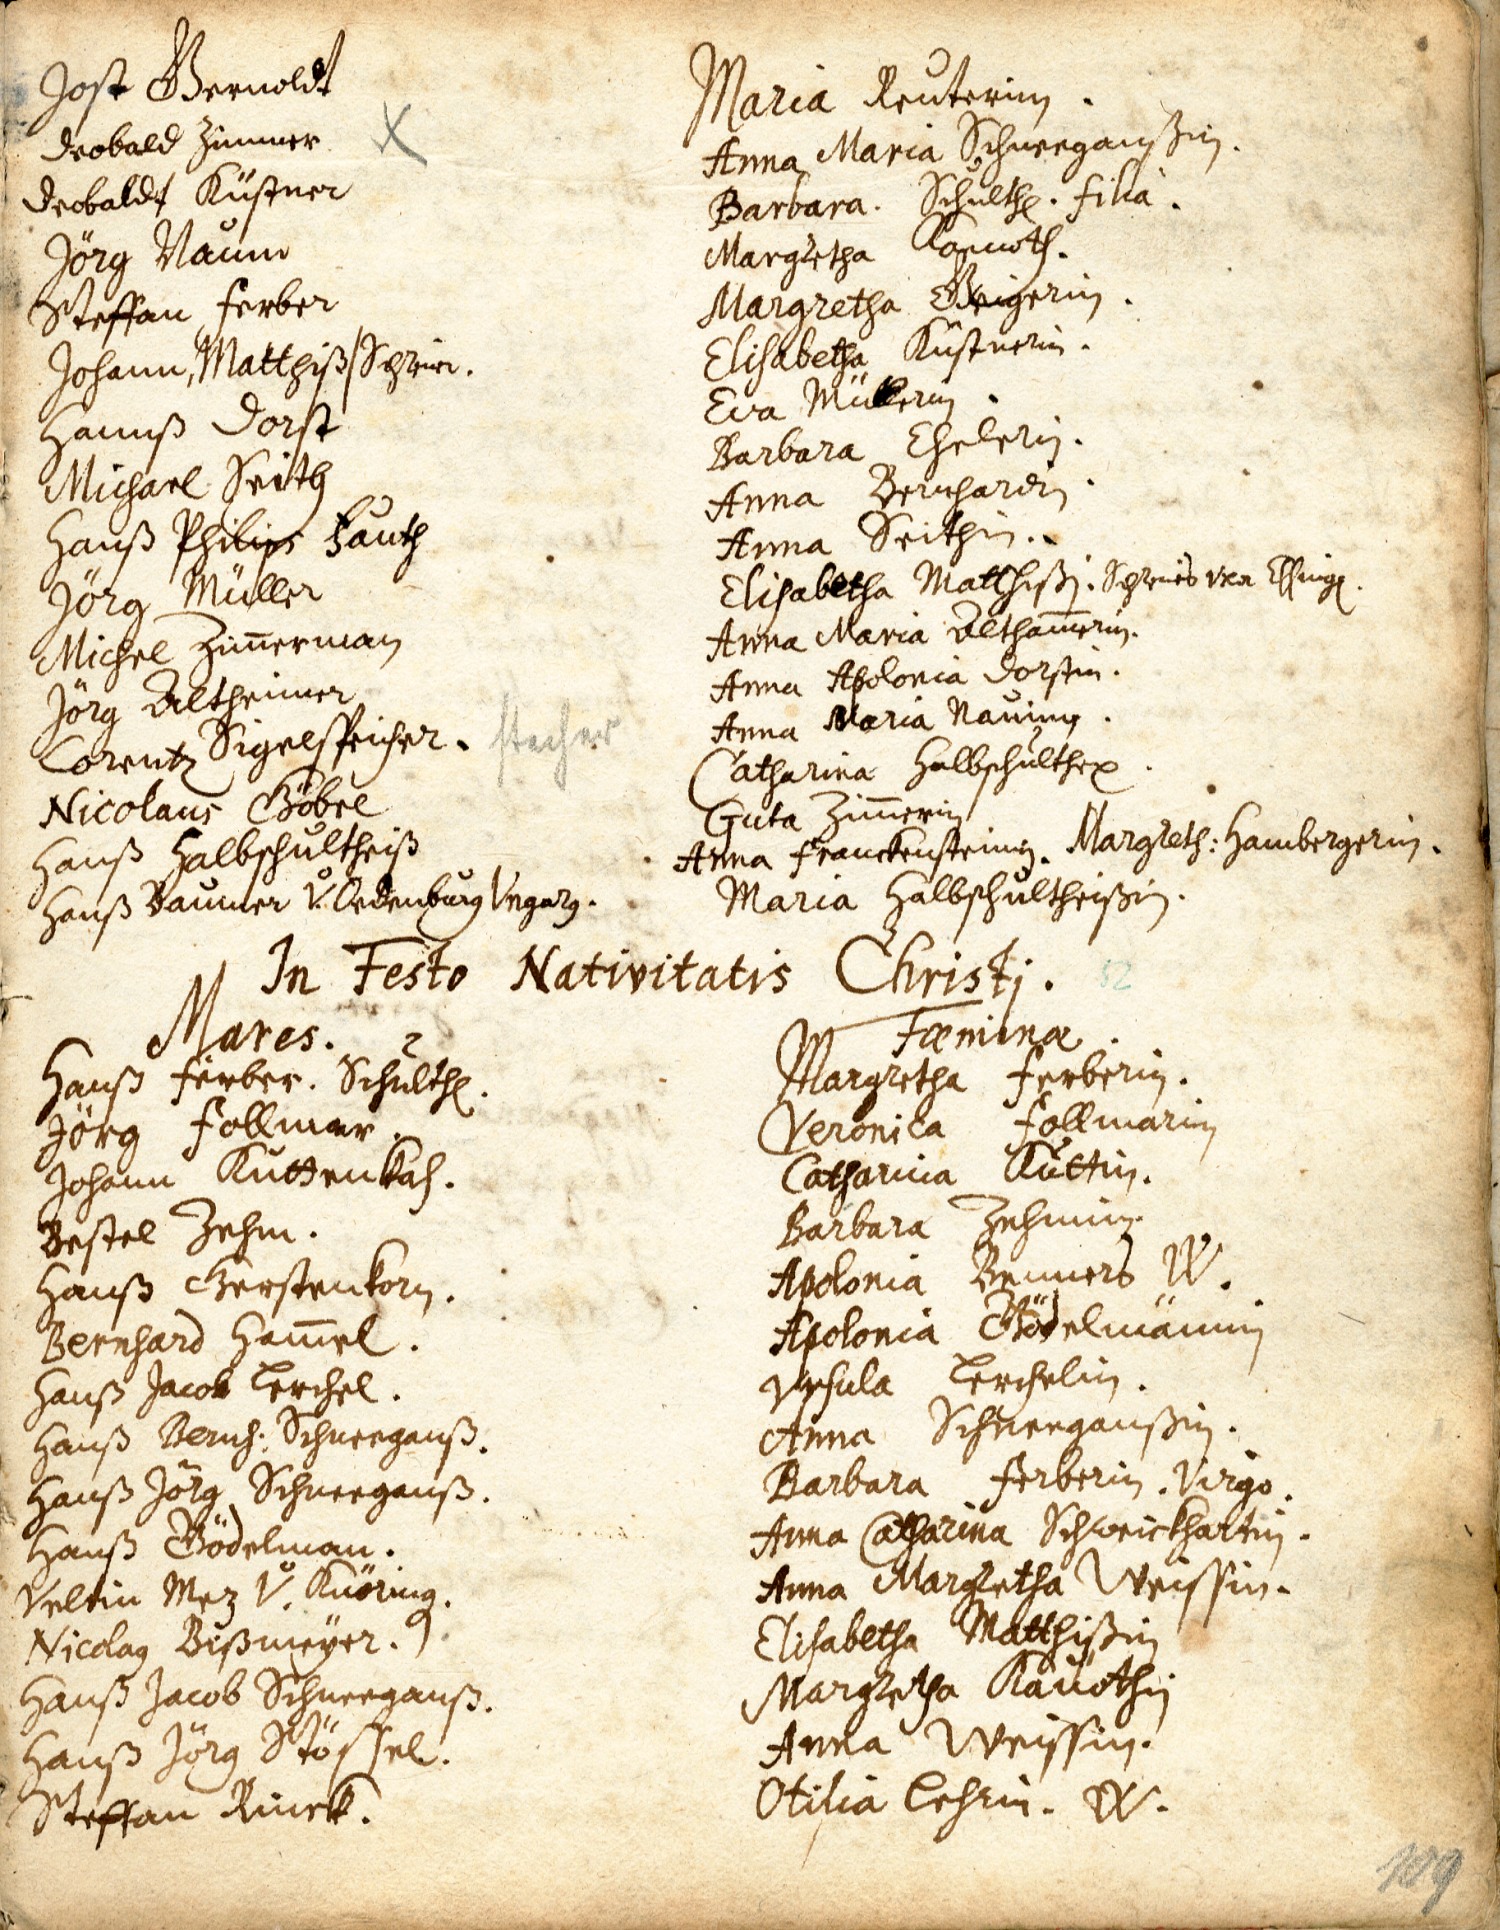 Jost Gernoldt
Deobald Zimmer
Deobaldt Küstner
Jörg Naum
Steffan Ferber
Johann, Matthiß
Hannß Dorst
Michael Seith
Hanß Philips Fauth
Jörg Müller
Michel Zim̄erman
Jörg Altheimer
Lorentz Sigelspeicher. stecher
Nicolaus Göbel
Hanß Halbschultheiß
Hanß Baumer V. Oedenburg Vngarg.
Maria Reuterin.
Anna Maria Schneeganßin.
Barbara. Schulth. filia.
Margretha
Margretha Geigerin.
Elisabetha Küstnerin.
Eva Müllerin.
Barbara Ehelerin.
Anna Bernhardin.
Anna Seithin.
Elisabetha Matthißj.
Anna Maria Altham̄erin.
Anna Apolonia Dorstin.
Anna Maria Nauimin.
Catharina Halbschulthex.
Guta Zim̄erin
Anna Franckensteinin. Margreth: Hambergerin.
Maria Halbschultheißin.
In Festo Nativitatis Christj. 52
Mares.
Hanß Ferber. Schulth.
Jörg Follmar.
Johann Kuttenkah.
Bestel Zehm.
Hanß Gerstenkorn.
Bernhard Ham̄el.
Hanß Jacob Lerchel.
Hanß Bernh: Schneeganß.
Hanß Jörg Schneeganß.
Hanß Gödelman.
Veltin Mez V. Knöring.
Nicolag Bißmeyer.
Hanß Jacob Schneeganß.
Hanß Jörg Stössel.
Steffan Rinck.
Fœminæ.
Margretha Ferberin.
Veronica Follmarin
Catharina Kuttin.
Barbara Zehmin.
Apolonia Benners W.
Apolonia Gödelmännin
Vrsula Lerchelin.
Anna Schneeganßin.
Barbara Ferberin. Virgo.
Anna Catharina Schweickhartin.
Anna Margretha Weissin.
Elisabetha Matthißin
Margretha Kauothin
Anna Weissin.
Otilia Lehrin. W.
109